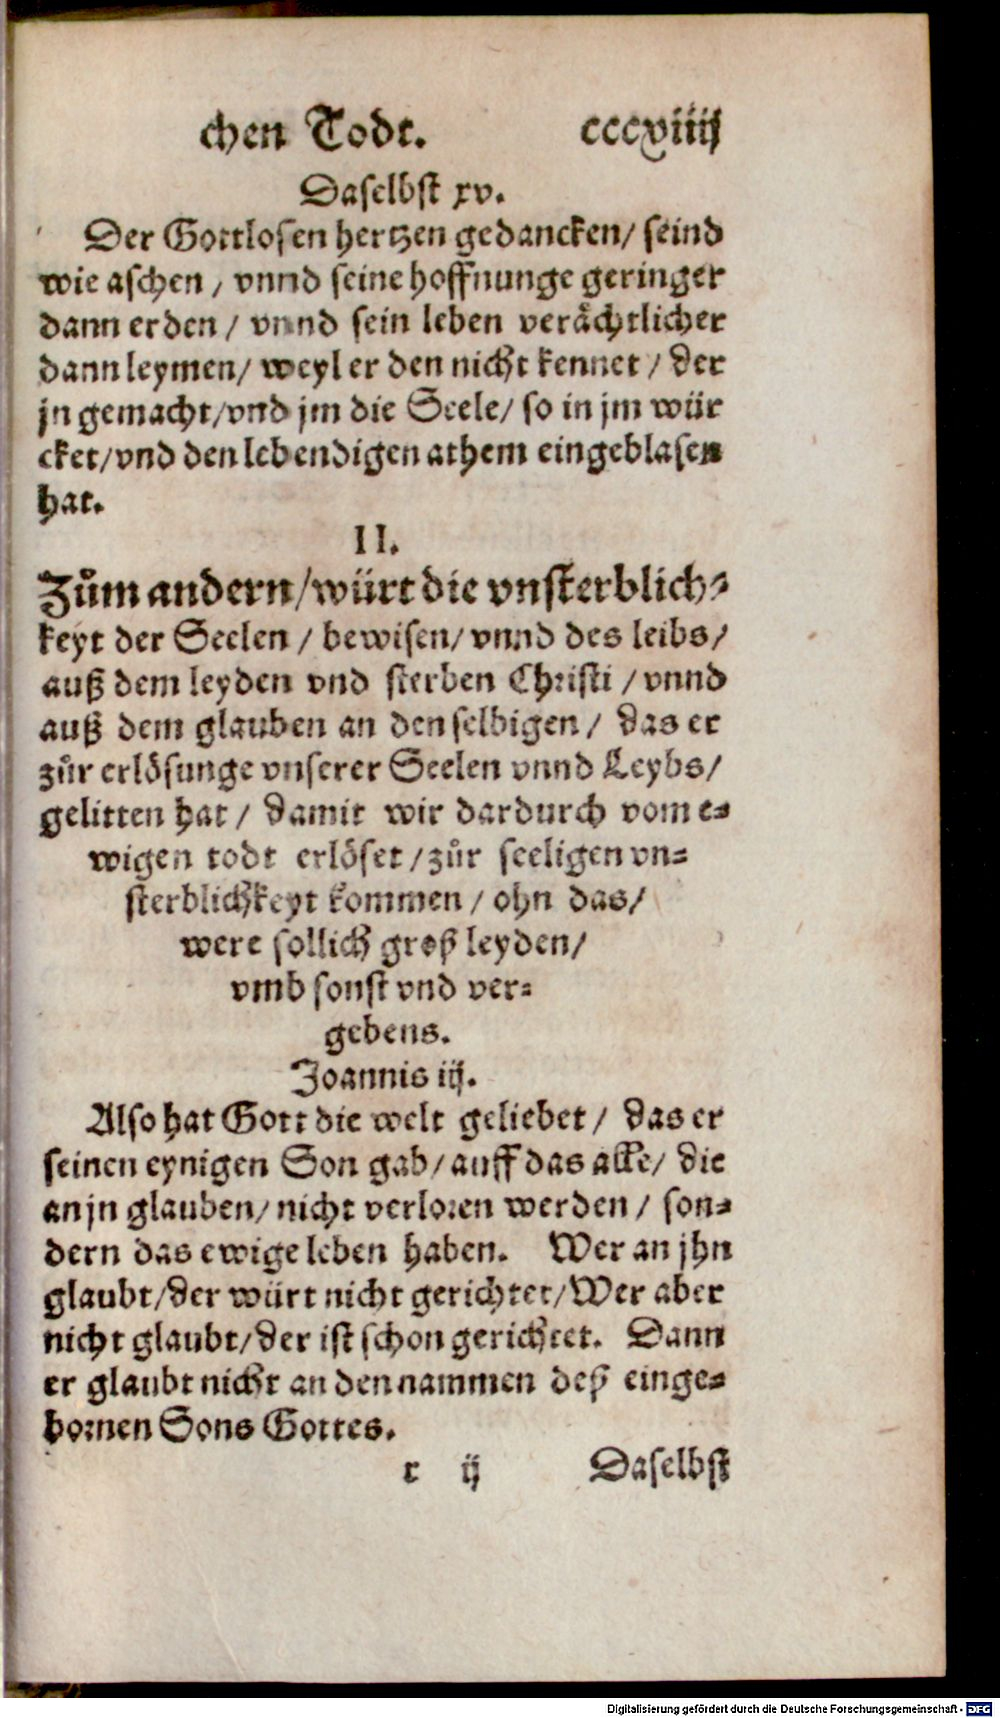 chen Todt. cccxiiij
Daselbst xv.
Der Gottlosen hertzen gedancken/ seind
wie aschen / vnnd seine hoffnunge geringer
dann erden / vnnd sein leben verächtlicher
dann leymen/ weyl er den nicht kennet / der
jn gemacht/vnd jm die Seele/ so in jm wür
cket/vnd den lebendigen athem eingeblasen
hat.
II.
Zům andern/würt die vnsterblich-
keyt der Seelen / bewisen/ vnnd des leibs/
auß dem leyden vnd sterben Christi / vnnd
auß dem glauben an den selbigen / das er
zůr erlösunge vnserer Seelen vnnd Leybs/
gelitten hat / damit wir dardurch vom e-
wigen todt erlöset / zůr seeligen vn-
sterblichkeyt kommen / ohn das/
were sollich groß leyden/
vmb sonst vnd ver-
gebens.
Joannis iij.
Also hat Gott die welt geliebet / das er
seinen eynigen Son gab/ auff das alle/ die
an jn glauben/ nicht verloren werden / son-
dern das ewige leben haben. Wer an jhn
glaubt/der würt nicht gerichtet/Wer aber
nicht glaubt/der ist schon gerichtet. Dann
er glaubt nicht an den nammen deß einge-
bornen Sons Gottes.
r ij Daselbst
Digitalisierung gefördert durch die Deutsche Forschungsgemeinschaft - DFG